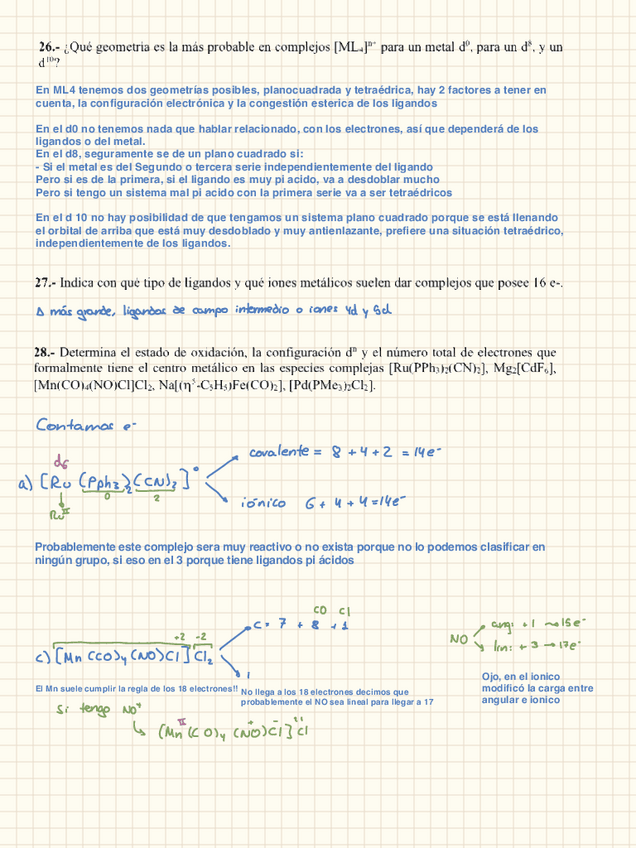 26.- ¿Qué geometría es la más probable en complejos [ML₄]ⁿ⁺ para un metal d⁰, para un d⁸, y un
d¹⁰?
En ML4 tenemos dos geometrías posibles, planocuadrada y tetraédrica, hay 2 factores a tener en
cuenta, la configuración electrónica y la congestión esterica de los ligandos
En el d0 no tenemos nada que hablar relacionado, con los electrones, así que dependerá de los
ligandos o del metal.
En el d8, seguramente se de un plano cuadrado si:
- Si el metal es del Segundo o tercera serie independientemente del ligando
Pero si es de la primera, si el ligando es muy pi acido, va a desdoblar mucho
Pero si tengo un sistema mal pi acido con la primera serie va a ser tetraédricos
En el d 10 no hay posibilidad de que tengamos un sistema plano cuadrado porque se está llenando
el orbital de arriba que está muy desdoblado y muy antienlazante, prefiere una situación tetraédrico,
independientemente de los ligandos.
27.- Indica con qué tipo de ligandos y qué iones metálicos suelen dar complejos que posee 16 e-.
Δ más grande, ligandos de campo intermedio o iones 4d y 5d
28.- Determina el estado de oxidación, la configuración dⁿ y el número total de electrones que
formalmente tiene el centro metálico en las especies complejas [Ru(PPh₃)₂(CN)₂], Mg₂[CdF₆],
[Mn(CO)₄(NO)Cl]Cl₂, Na[(η⁵-C₅H₅)Fe(CO)₂], [Pd(PMe₃)₂Cl₂].
Contamos e⁻
d6
covalente = 8 + 4 + 2 = 14e⁻
a) [Ru (PPh₃)₂(CN)₂]⁰
0 2
Ruᴵᴵ
iónico 6 + 4 + 4 = 14e⁻
Probablemente este complejo sera muy reactivo o no exista porque no lo podemos clasificar en
ningún grupo, si eso en el 3 porque tiene ligandos pi ácidos
CO Cl
C = 7 + 8 + 1
+2 -2
c) [Mn (CO)₄ (NO)Cl]Cl₂
I
NO
ang: +1 → 15e⁻
lin: +3 → 17e⁻
El Mn suele cumplir la regla de los 18 electrones!!
No llega a los 18 electrones decimos que
probablemente el NO sea lineal para llegar a 17
Ojo, en el ionico
modificó la carga entre
angular e ionico
Si tengo NO⁺
II + -
[Mn (CO)₄ (NO)Cl]⁺¹ Cl